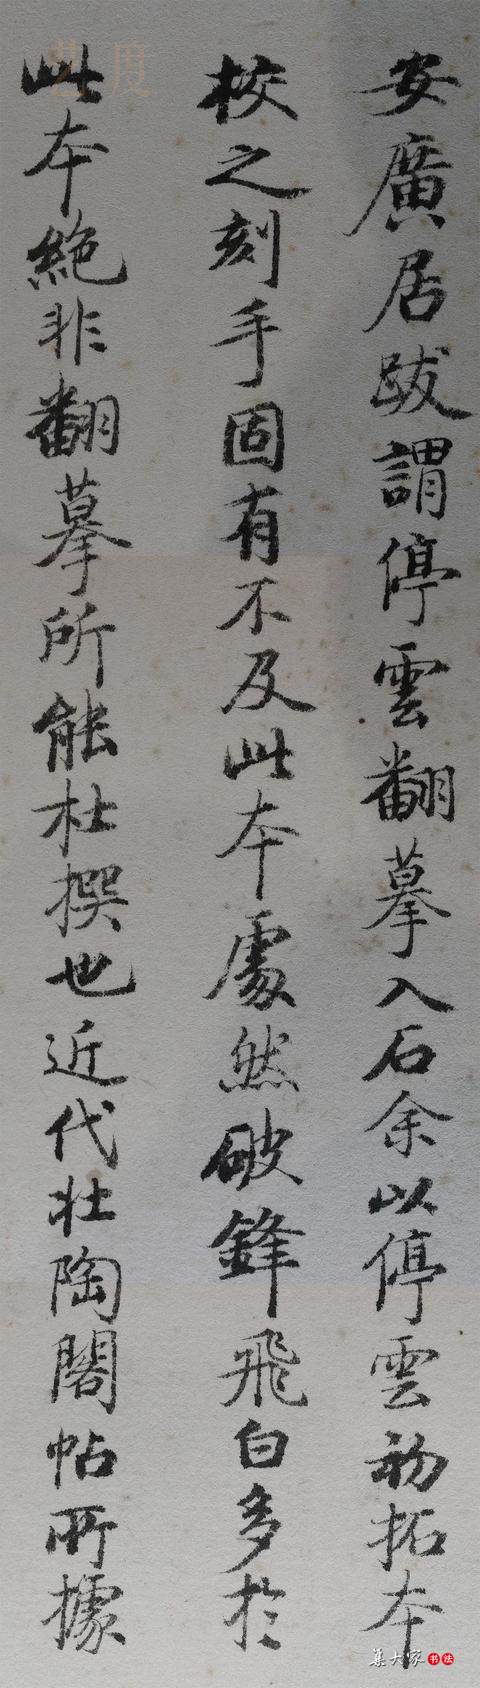 安廣居跋謂停雲翻摹入石余以停雲初拓本
校之刻手固有不及此本處然破鋒飛白多於
此本絶非翻摹所能杜撰也近代壯陶閣帖所據
藝度
集大家書法